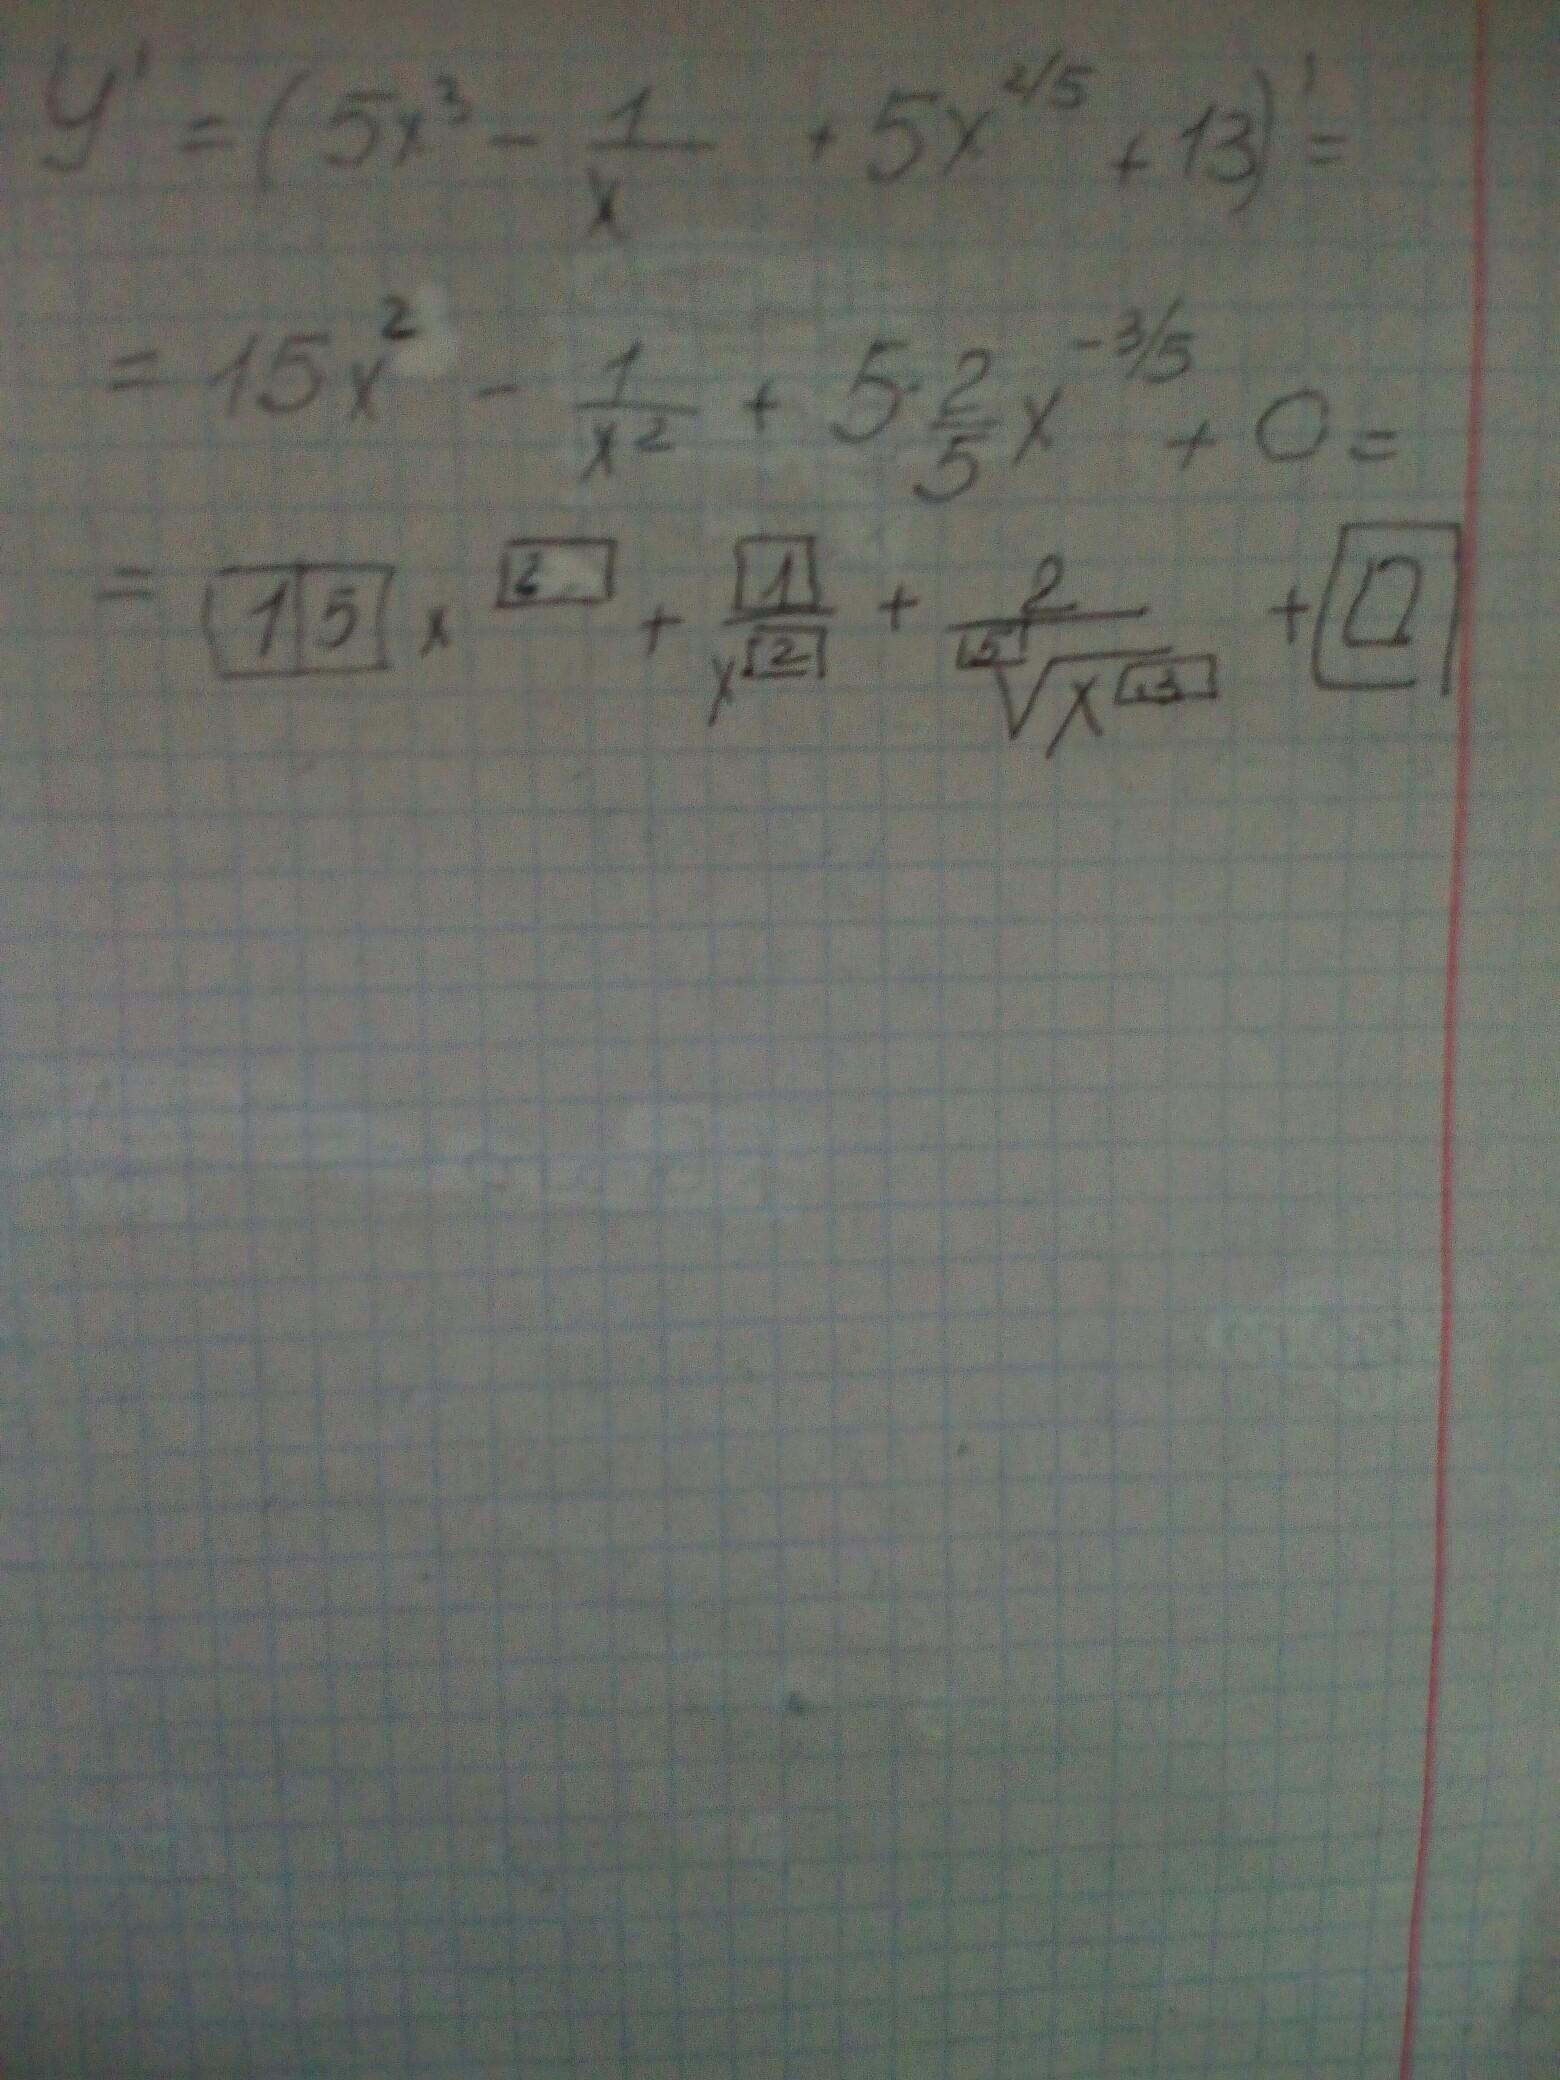 y' = (5x³ - 1/x + 5x^2/5 + 13)' =
= 15x² - 1/x² + 5·2/5 x^-3/5 + 0 =
= 15 x^2 + 1/x^2 + 2/5√x^3 + 0